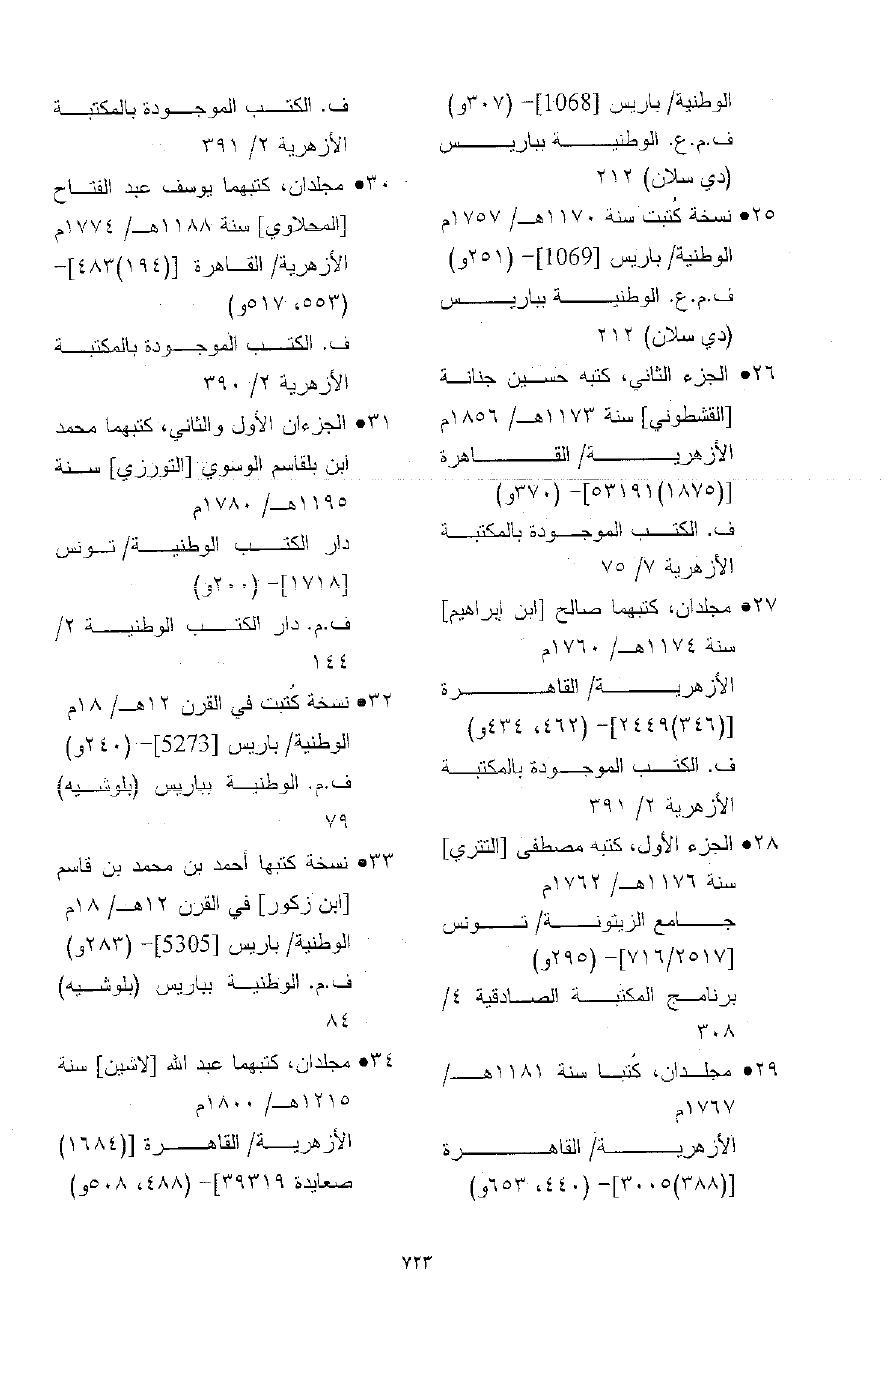 الوطنية/ باريس [1068]– (٣٠٧و)
ف.م.ع. الوطنية بباريس
(دي سلان) ٢١٢
٢٥• نسخة كُتبت سنة ١١٧٠هـ/ ١٧٥٧م
الوطنية/ باريس [1069]– (٢٥١و)
ف.م.ع. الوطنية بباريس
(دي سلان) ٢١٢
٢٦• الجزء الثاني، كتبه حسين جنانة
[القشطوني] سنة ١١٧٣هـ/ ١٨٥٦م
الأزهرية/ القاهرة
[(١٨٧٥)٥٣١٩١]– (٣٧٠و)
ف. الكتب الموجودة بالمكتبة
الأزهرية ٧/ ٧٥
٢٧• مجلدان، كتبهما صالح [ابن إبراهيم]
سنة ١١٧٤هـ/ ١٧٦٠م
الأزهرية/ القاهرة
[(٣٤٦)٢٤٤٩]– (٤٦٢، ٤٣٤و)
ف. الكتب الموجودة بالمكتبة
الأزهرية ٢/ ٣٩١
٢٨• الجزء الأول، كتبه مصطفى [التتري]
سنة ١١٧٦هـ/ ١٧٦٢م
جامع الزيتونة/ تونس
[٧١٦/٢٥١٧]– (٢٩٥و)
برنامج المكتبة الصادقية ٤/
٣٠٨
٢٩• مجلدان، كُتبا سنة ١١٨١هـ/
١٧٦٧م
الأزهرية/ القاهرة
[(٣٨٨)٣٠٠٥]– (٤٤٠، ٦٥٣و)
ف. الكتب الموجودة بالمكتبة
الأزهرية ٢/ ٣٩١
٣٠• مجلدان، كتبهما يوسف عبد الفتاح
[المحلاوي] سنة ١١٨٨هـ/ ١٧٧٤م
الأزهرية/ القاهرة [(١٩٤)٤٨٣]–
(٥٥٣، ٥١٧و)
ف. الكتب الموجودة بالمكتبة
الأزهرية ٢/ ٣٩٠
٣١• الجزءان الأول والثاني، كتبهما محمد
ابن بلقاسم الوسوي [التورزي] سنة
١١٩٥هـ/ ١٧٨٠م
دار الكتب الوطنية/ تونس
[١٧١٨]– (٢٠٠و)
ف.م. دار الكتب الوطنية ٢/
١٤٤
٣٢• نسخة كُتبت في القرن ١٢هـ/ ١٨م
الوطنية/ باريس [5273]– (٢٤٠و)
ف.م. الوطنية بباريس (بلوشيه)
٧٩
٣٣• نسخة كتبها أحمد بن محمد بن قاسم
[ابن زكور] في القرن ١٢هـ/ ١٨م
الوطنية/ باريس [5305]– (٢٨٣و)
ف.م. الوطنية بباريس (بلوشيه)
٨٤
٣٤• مجلدان، كتبهما عبد الله [لاشين] سنة
١٢١٥هـ/ ١٨٠٠م
الأزهرية/ القاهرة [(١٦٨٤)
صعايدة ٣٩٣١٩]– (٤٨٨، ٥٠٨و)
٧٢٣